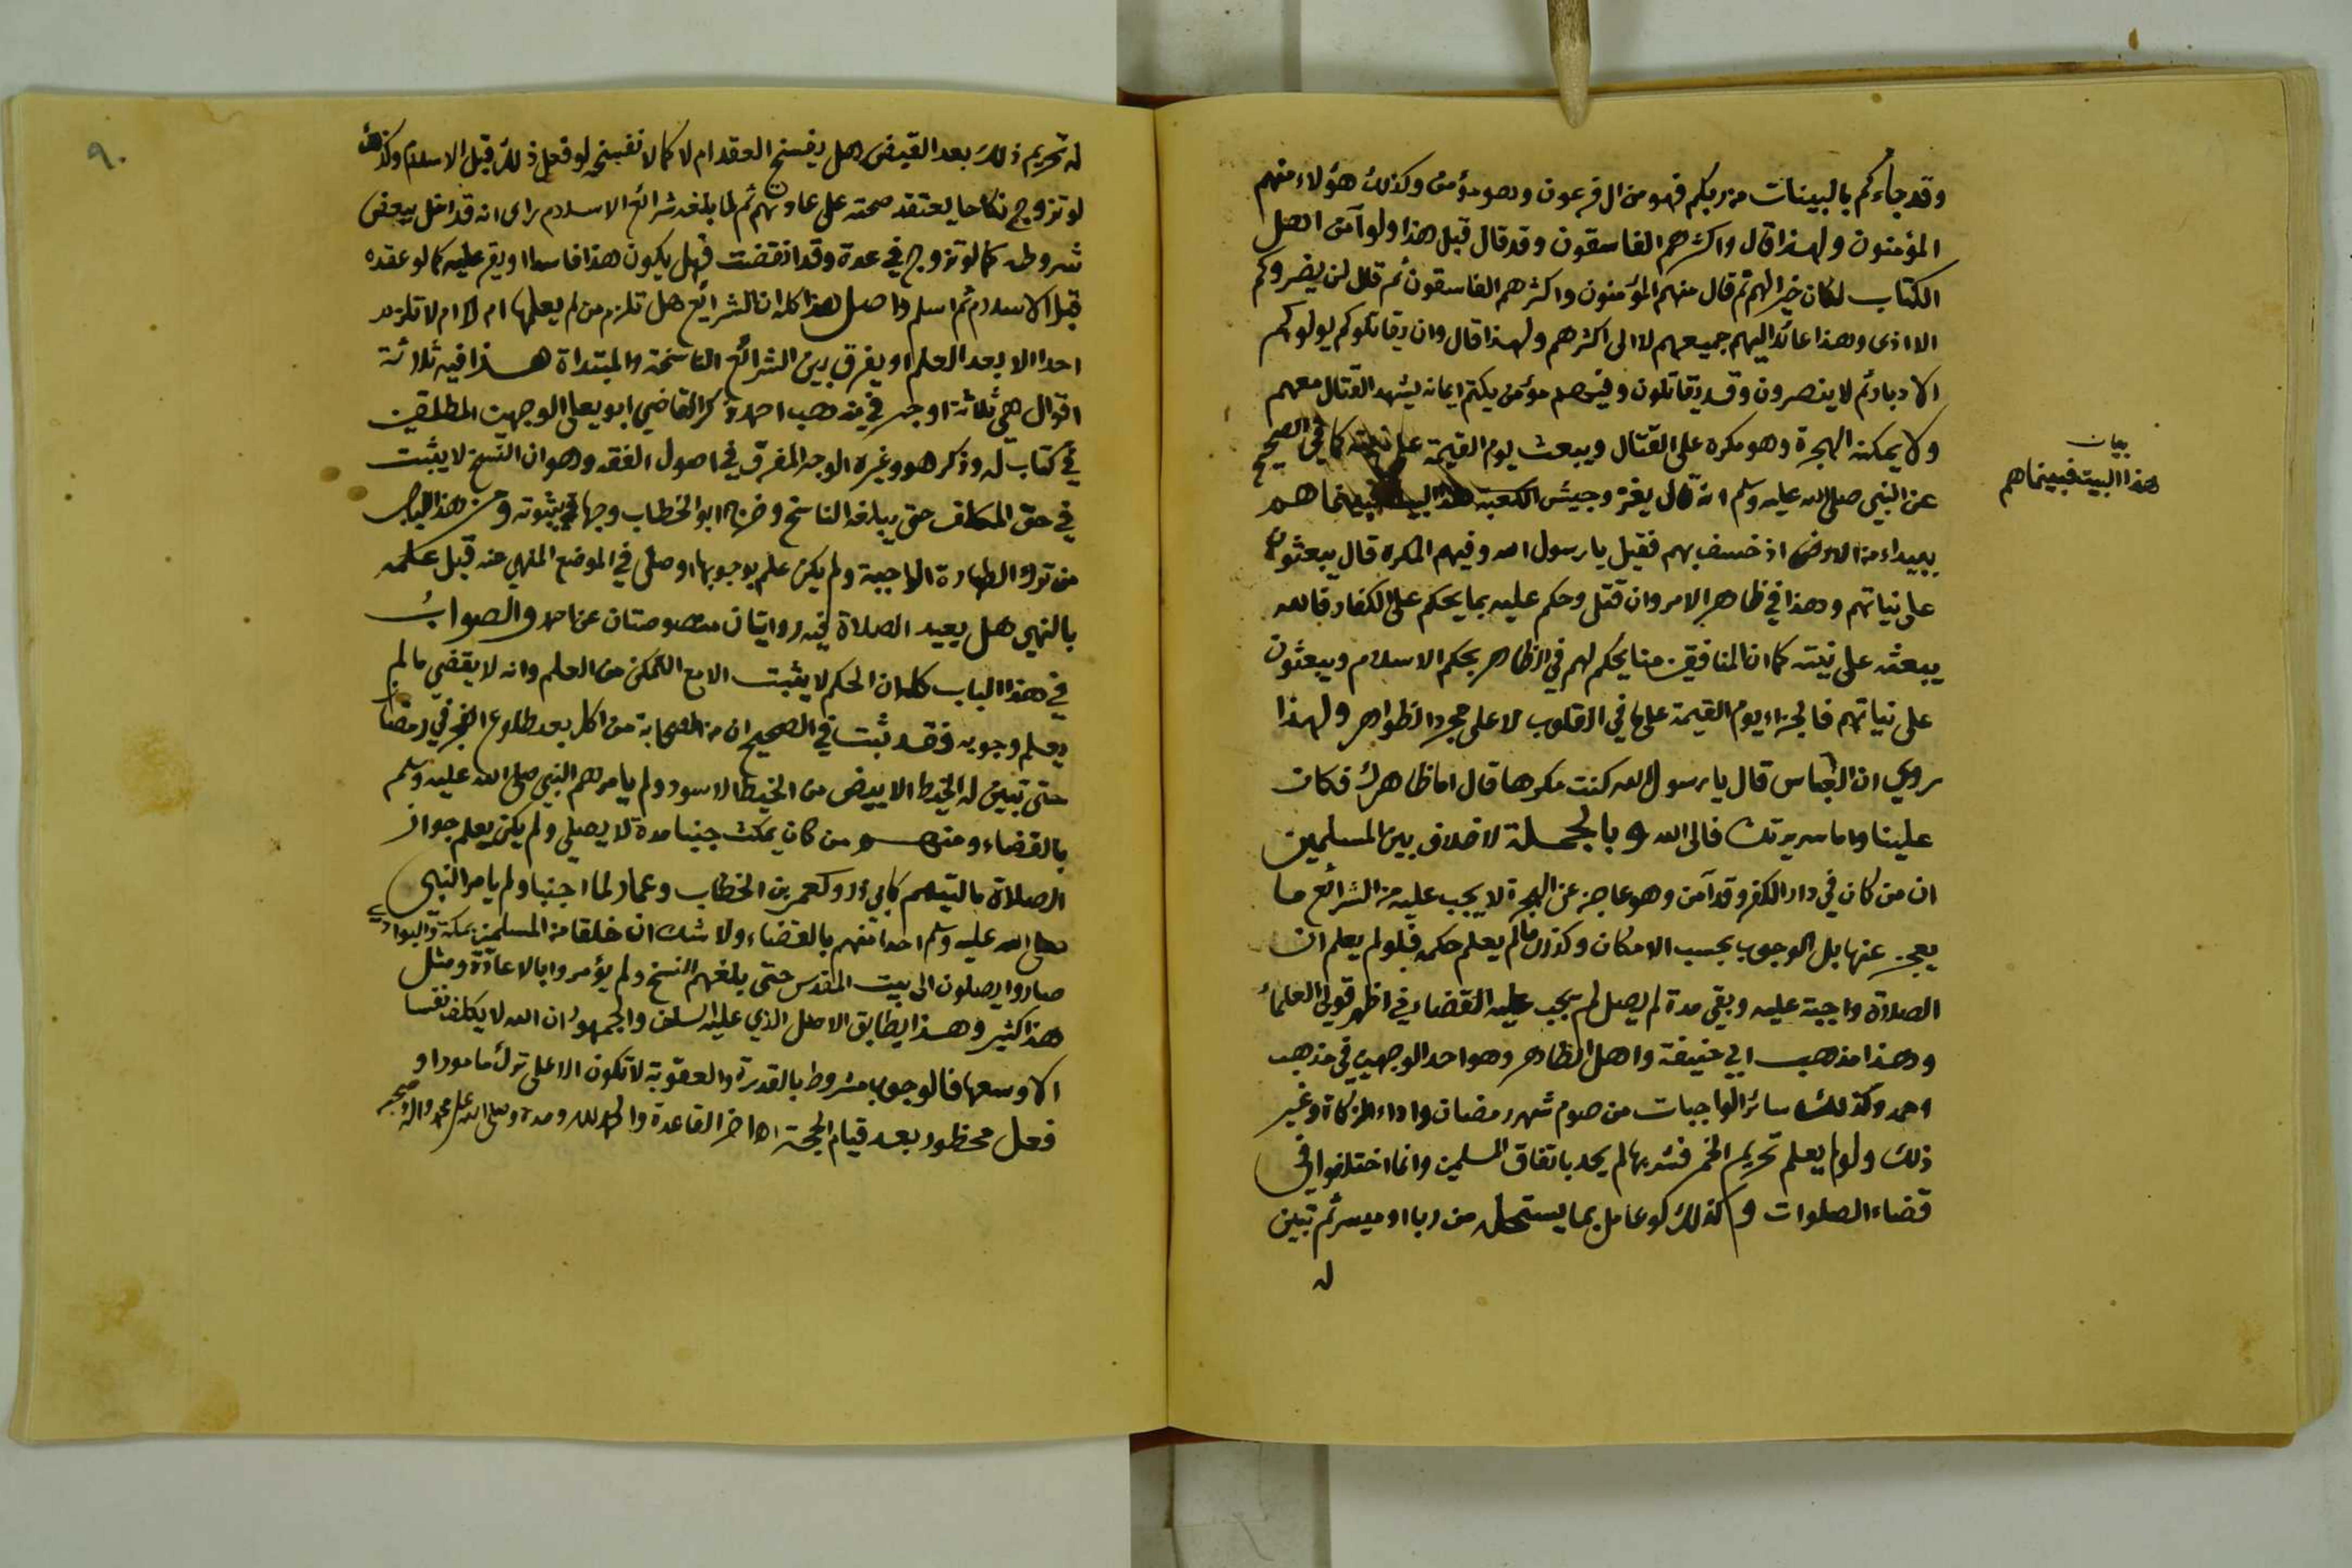 وقد جاءكم بالبينات من ربكم فهو من ال فرعون وهو مؤمن وكذلك هؤلاء منهم
المؤمنون ولهذا قال واكثرهم الفاسقون وقد قال قبل هذا ولو آمن اهل
الكتاب لكان خيرا لهم ثم قال منهم المؤمنون واكثرهم الفاسقون ثم قال لن يضروكم
الا اذى وهذا عائد اليهم جميعهم لا الى اكثرهم ولهذا قال وان يقاتلوكم يولوكم
الادبار ثم لا ينصرون وقد يقاتلون وفيهم مؤمن يكتم ايمانه يشهد القتال معهم
ولا يمكنه الهجرة وهو مكره على القتال ويبعث يوم القيمة على نيته كما في الصحيح
عن النبي صلى الله عليه وسلم انه قال يغزو جيش الكعبة هذا البيت فبينما هم
بيان
هذا البيت فبينما هم
ببيداء من الارض اذ خسف بهم فقيل يا رسول الله وفيهم المكره قال يبعثون
على نياتهم وهذا في ظاهر الامر وان قتل وحكم عليه بما يحكم على الكفار فالله
يبعثه على نيته كما ان المنافقين منا يحكم لهم في الظاهر بحكم الاسلام ويبعثون
على نياتهم فالجزاء يوم القيمة على ما في القلوب لا على مجرد الظواهر ولهذا
روي ان العباس قال يا رسول الله كنت مكرها قال اما ظاهرك فكان
علينا واما سريرتك فالى الله وبالجملة لا خلاف بين المسلمين
ان من كان في دار الكفر وقد آمن وهو عاجز عن الهجرة لا يجب عليه من الشرائع ما
يعجز عنها بل الوجوب بحسب الامكان وكذلك ما لم يعلم حكمه فلو لم يعلم ان
الصلاة واجبة عليه وبقي مدة لم يصل لم يجب عليه القضاء في اظهر قولي العلماء
وهذا مذهب ابي حنيفة واهل الظاهر وهو احد الوجهين في مذهب
احمد وكذلك سائر الواجبات من صوم شهر رمضان واداء الزكاة وغير
ذلك ولو لم يعلم تحريم الخمر فشربها لم يحد باتفاق المسلمين وانما اختلفوا في
قضاء الصلوات وكذلك لو عامل بما يستحله من ربا او ميسر ثم تبين
له
٩٠
له تحريم ذلك بعد القبض هل يفسخ العقد ام لا كما لا نفسخه لو فعل ذلك قبل الاسلام وكذلك
لو تزوج نكاحا يعتقد صحته على عادتهم ثم لما بلغه شرائع الاسلام راى انه قد اخل ببعض
شروطه كما لو تزوج في عدة وقد انقضت فهل يكون هذا فاسدا او يقر عليه كما لو عقده
قبل الاسلام ثم اسلم واصل هذا كله ان الشرائع هل تلزم من لم يعلمها ام لا ام لا تلزم
احدا الا بعد العلم او يفرق بين الشرائع الناسخة والمبتداة هذا فيه ثلاثة
اقوال هي ثلاثة اوجه في مذهب احمد ذكر القاضي ابو يعلى الوجهين المطلقين
في كتاب له وذكر هو وغيره الوجه المفرق في اصول الفقه وهو ان النسخ لا يثبت
في حق المكلف حتى يبلغه الناسخ وخرج ابو الخطاب وجها في ثبوته ومن هذا الباب
من ترك الطهارة الواجبة ولم يكن علم بوجوبها او صلى في الموضع المنهي عنه قبل علمه
بالنهي هل يعيد الصلاة فيه روايتان منصوصتان عن احمد والصواب
في هذا الباب كله ان الحكم لا يثبت الا مع التمكن من العلم وانه لا يقضي ما لم
يعلم وجوبه فقد ثبت في الصحيح ان من الصحابة من اكل بعد طلوع الفجر في رمضان
حتى تبين له الخيط الابيض من الخيط الاسود ولم يامرهم النبي صلى الله عليه وسلم
بالقضاء ومنهم من كان يمكث جنبا مدة لا يصلي ولم يكن يعلم جواز
الصلاة بالتيمم كابي ذر وكعمر بن الخطاب وعمار لما اجنبا ولم يامر النبي
صلى الله عليه وسلم احدا منهم بالقضاء ولا شك ان خلقا من المسلمين بمكة والبوادي
صاروا يصلون الى بيت المقدس حتى بلغهم النسخ ولم يؤمروا بالاعادة ومثل
هذا كثير وهذا يطابق الاصل الذي عليه السلف والجمهور ان الله لا يكلف نفسا
الا وسعها فالوجوب مشروط بالقدرة والعقوبة لا تكون الا على ترك مامور او
فعل محظور بعد قيام الحجة اخر القاعدة والحمد لله وحده وصلى الله على محمد واله وصحبه